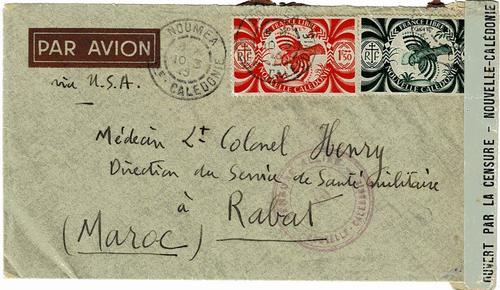 PAR AVION
via U.S.A.
NOUMEA
Nlle CALEDONIE
FRANCE LIBRE
RF
1f50
NOUVELLE CALEDONIE
FRANCE LIBRE
RF
NOUVELLE CALEDONIE
Médecin Lt Colonel Henry
Direction du Service de Santé militaire
à Rabat
(Maroc)
OUVERT PAR LA CENSURE - NOUVELLE-CALEDONIE